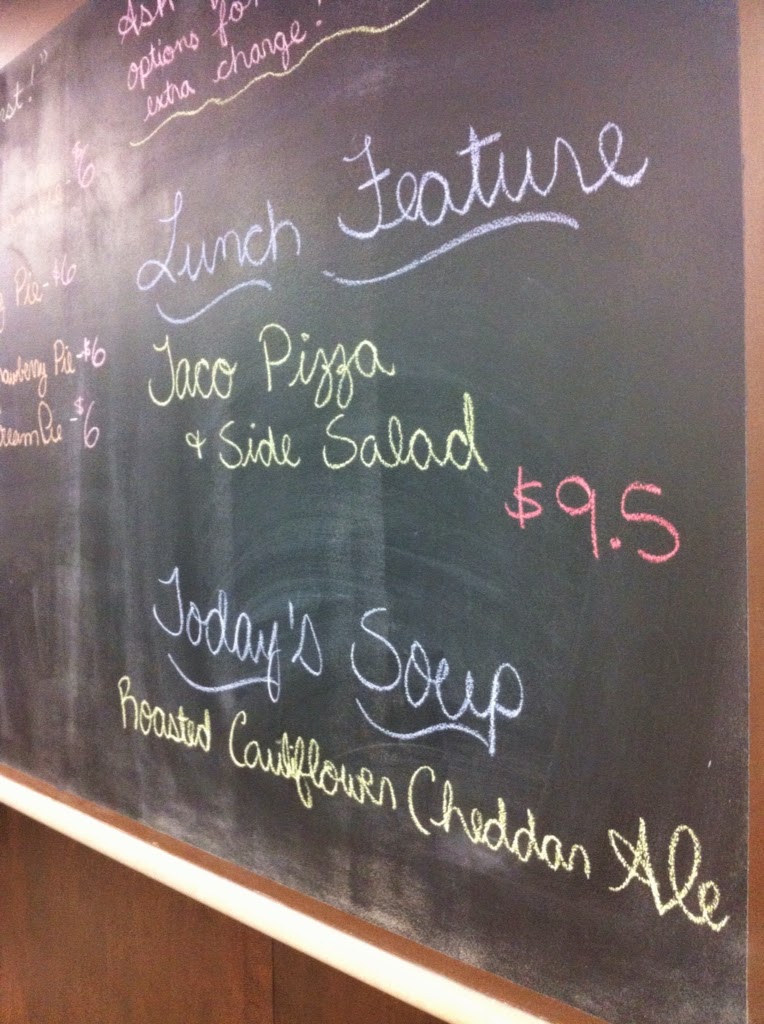 Ask
options for
extra charge!
$6
Pie-$6
Pie-$6
Pie-$6
Lunch Feature
Taco Pizza
+ Side Salad
$9.5
Today's Soup
Roasted Cauliflower Cheddar Ale